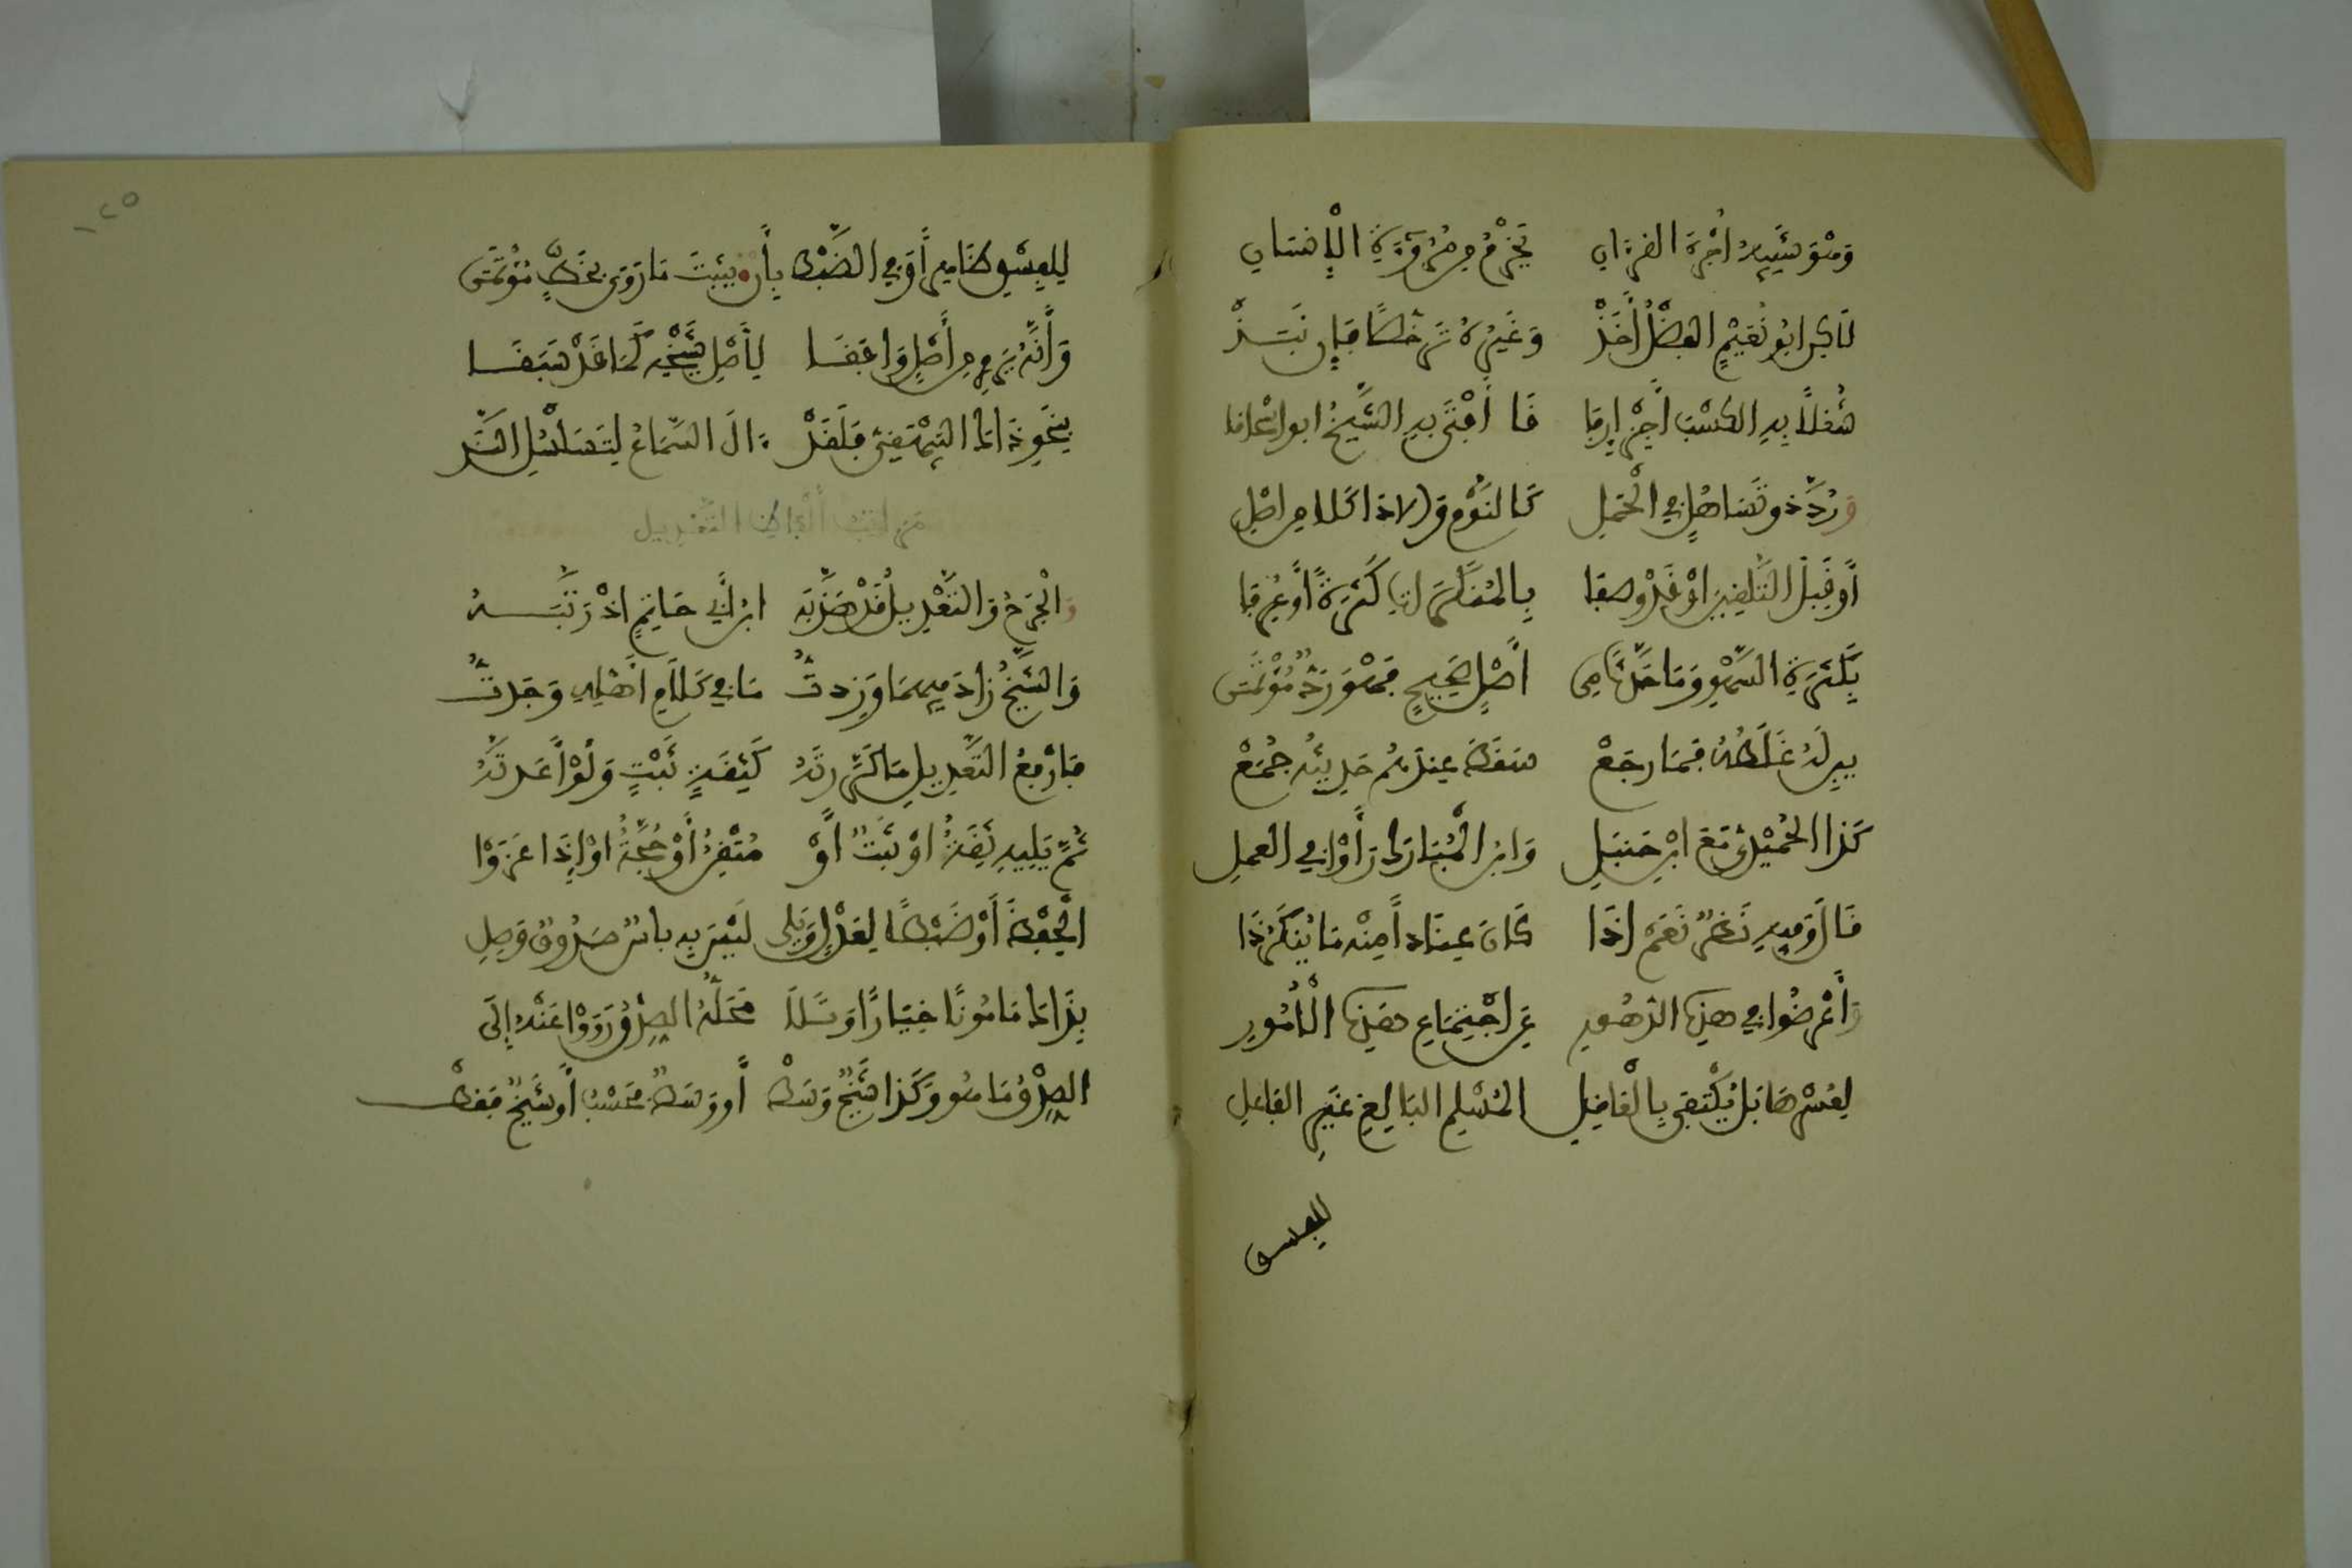 وَهْوَ شَبِيهُ أُجْرَةِ القرءان يَخْرِمُ مِن مُرُوءَةِ الْإِنْسَانِ
لَاكِن ابُو نُعَيْمٍ الفَضْلُ أَخَذْ وَغَيْرُهُ تَرَخُّصًا فَإِن نَبَذْ
شُغْلاً بِهِ الكَسْبَ أَجِزْ إِرفَاقَا أَفْتَى بِهِ الشَّيْخُ ابو إسْحَاقَا
وَرُدَّ ذو تَسَاهُلٍ فِي الْحَمْلِ كَالنَّوْمِ وَالادَا كَلا مِن اصْلِ
أَوْ قَبِلَ التَّلْقِينَ اوْ قَدْ وصفا بِالمُنْكَرَاتِ كَثْرَةً أَوْ عُرِفَا
بِكَثْرَةِ السَّهْوِ وَمَا حَدَّثَ مِن أَصْلٍ صَحِيحٍ فَهْوَ رَدٌّ ثُمَّ إِن
بين لَهُ غَلَطُهُ فَمَا رجَعْ سَقَطَ عِندَهُم حَدِيثُهُ جُمَعْ
كَذَا الحُمَيْدِي مَعَ ابْنِ حَنبَلِ وَابنِ الْمُبَارَكِ رَأَوْا فِي العملِ
قَالَ وَفِيهِ نَظَرٌ نَعَمْ إِذَا كَانَ عِنَاداً مِنْهُ مَا يُنكَرُ ذَا
وَأَعْرَضُوا فِي هذِهِ الدّهُورِ عَنِ اجْتِمَاعِ هَذِهِ الْأُمُورِ
لِعُسْرِهَا بَلْ يُكْتَفَى بِالْعَاقِلِ المُسْلِمِ البَالِغِ غَيْرِ الفَاعِلِ
للفسق
١٢٥
لِلْفِسْقِ ظَاهِراً وَفِي الضَّبْطِ بِأَنْ يُثْبَتَ مَا رَوَى بِخَطٍّ مُؤْتَمَن
وَأَنَّهُ يَرْوِي مِن أَصْلٍ وَافَقَا لِأَصْلِ شَيْخِهِ كَمَا قَدْ سَبَقَا
بِنَحْوِ ذَاكَ البَيْهَقِيُّ فَلَقَدْ ءالَ السَّمَاعُ لِتَسَلْسُلِ السَّنَد
مَرَاتِبُ أَلْفَاظِ التَّعْدِيلِ
وَالْجَرْحُ وَالتَّعْدِيلُ قَدْ هَذَّبَه ابنُ أَبِي حَاتِمٍ اذْ رَتَّبَهُ
وَالشَّيْخُ زَادَ فِيهِمَا وَزِدتُ مَا فِي كَلَامِ أَهْلِهِ وَجَدتُ
فَأَرْفَعُ التَّعْدِيلِ مَا كَرَّرتَهُ كَثِقَةٍ ثَبْتٍ وَلَوْ أَعَدتَهُ
ثُمَّ يَلِيهِ ثِقَةٌ اوْ ثَبْتٌ أَوْ مُتْقِنٌ أَوْ حُجَّةٌ اوْ إِذَا عَزَوْا
الْحِفْظَ أَوْ ضَبْطاً لِعَدْلٍ وَيَلِي لَيْسَ بِهِ بأسٌ صَدُوقٌ وَصِلِ
بِذَاكَ مَامُونًا خِيَارًا وَتَلَا مَحَلُّهُ الصِّدْقُ رَوَوْا عَنْهُ إِلَى
الصِّدْقِ مَا هُو وَكَذا شَيْخٌ وَسَطْ أَوْ وَسَطٌ فَحَسْبُ أَو شَيْخٌ فَقَطْ